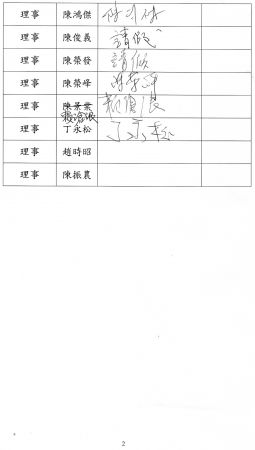 理事 陳鴻傑
理事 陳俊義 請假
理事 陳榮發 請假
理事 陳榮峰
理事 陳景業
理事 丁永松 丁永松
理事 趙時昭
理事 陳振農
2